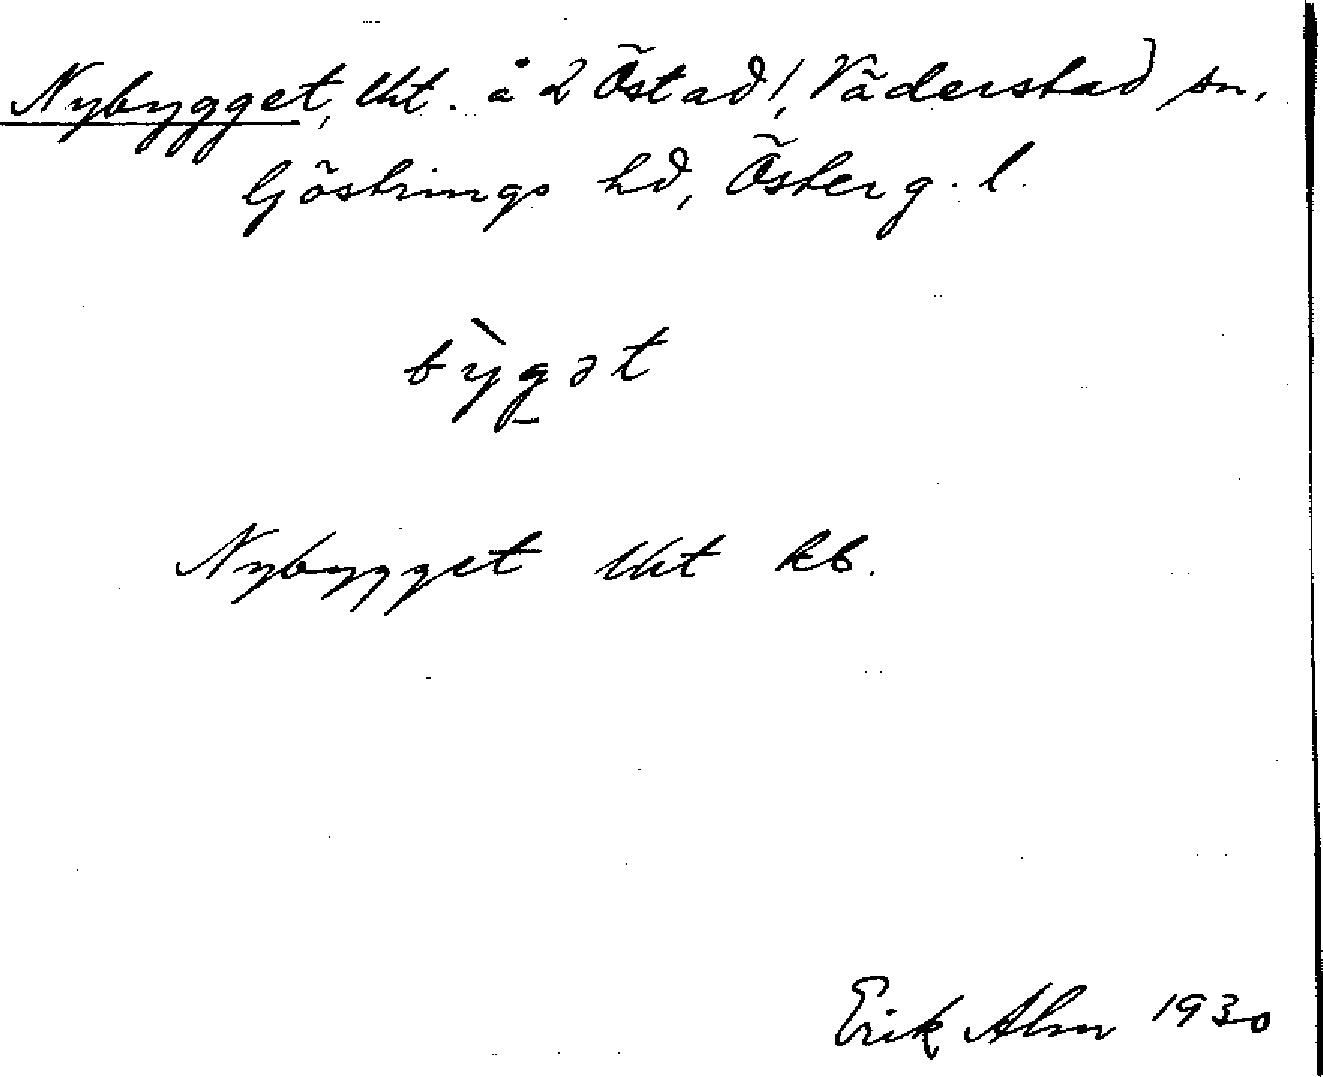 Nybygget, lht. å 2 Östad!, Väderstad sn,
Göstrings hd, Österg. l.
bỳgət
Nybygget lht kb.
Erik Alm 1930